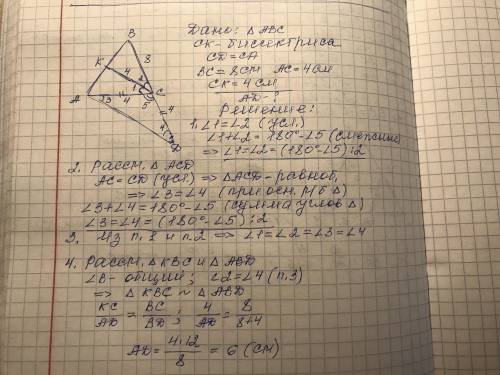 B
K
8
4
2
1
C
A
3
4
5
4
4
D
Дано: △ ABC
CK - биссектриса
CD = CA
BC = 8 см AC = 4 см
CK = 4 см
AD - ?
Решение:
1. ∠1 = ∠2 (усл.)
∠1+∠2 = 180° - ∠5 (смежные)
=> ∠1 = ∠2 = (180° - ∠5) : 2
2. Рассм. △ ACD
AC = CD (усл) => △ACD - равноб,
=> ∠3 = ∠4 (при осн. р/б △)
∠3+∠4 = 180° - ∠5 (сумма углов △)
∠3 = ∠4 = (180° - ∠5) : 2
3. Из п. 1 и п. 2 => ∠1 = ∠2 = ∠3 = ∠4
4. Рассм. △ KBC и △ ABD
∠B - общий; ∠2 = ∠4 (п. 3)
=> △ KBC ~ △ ABD
KC/AD = BC/BD ; 4/AD = 8/8+4
AD = 4·12/8 = 6 (см)